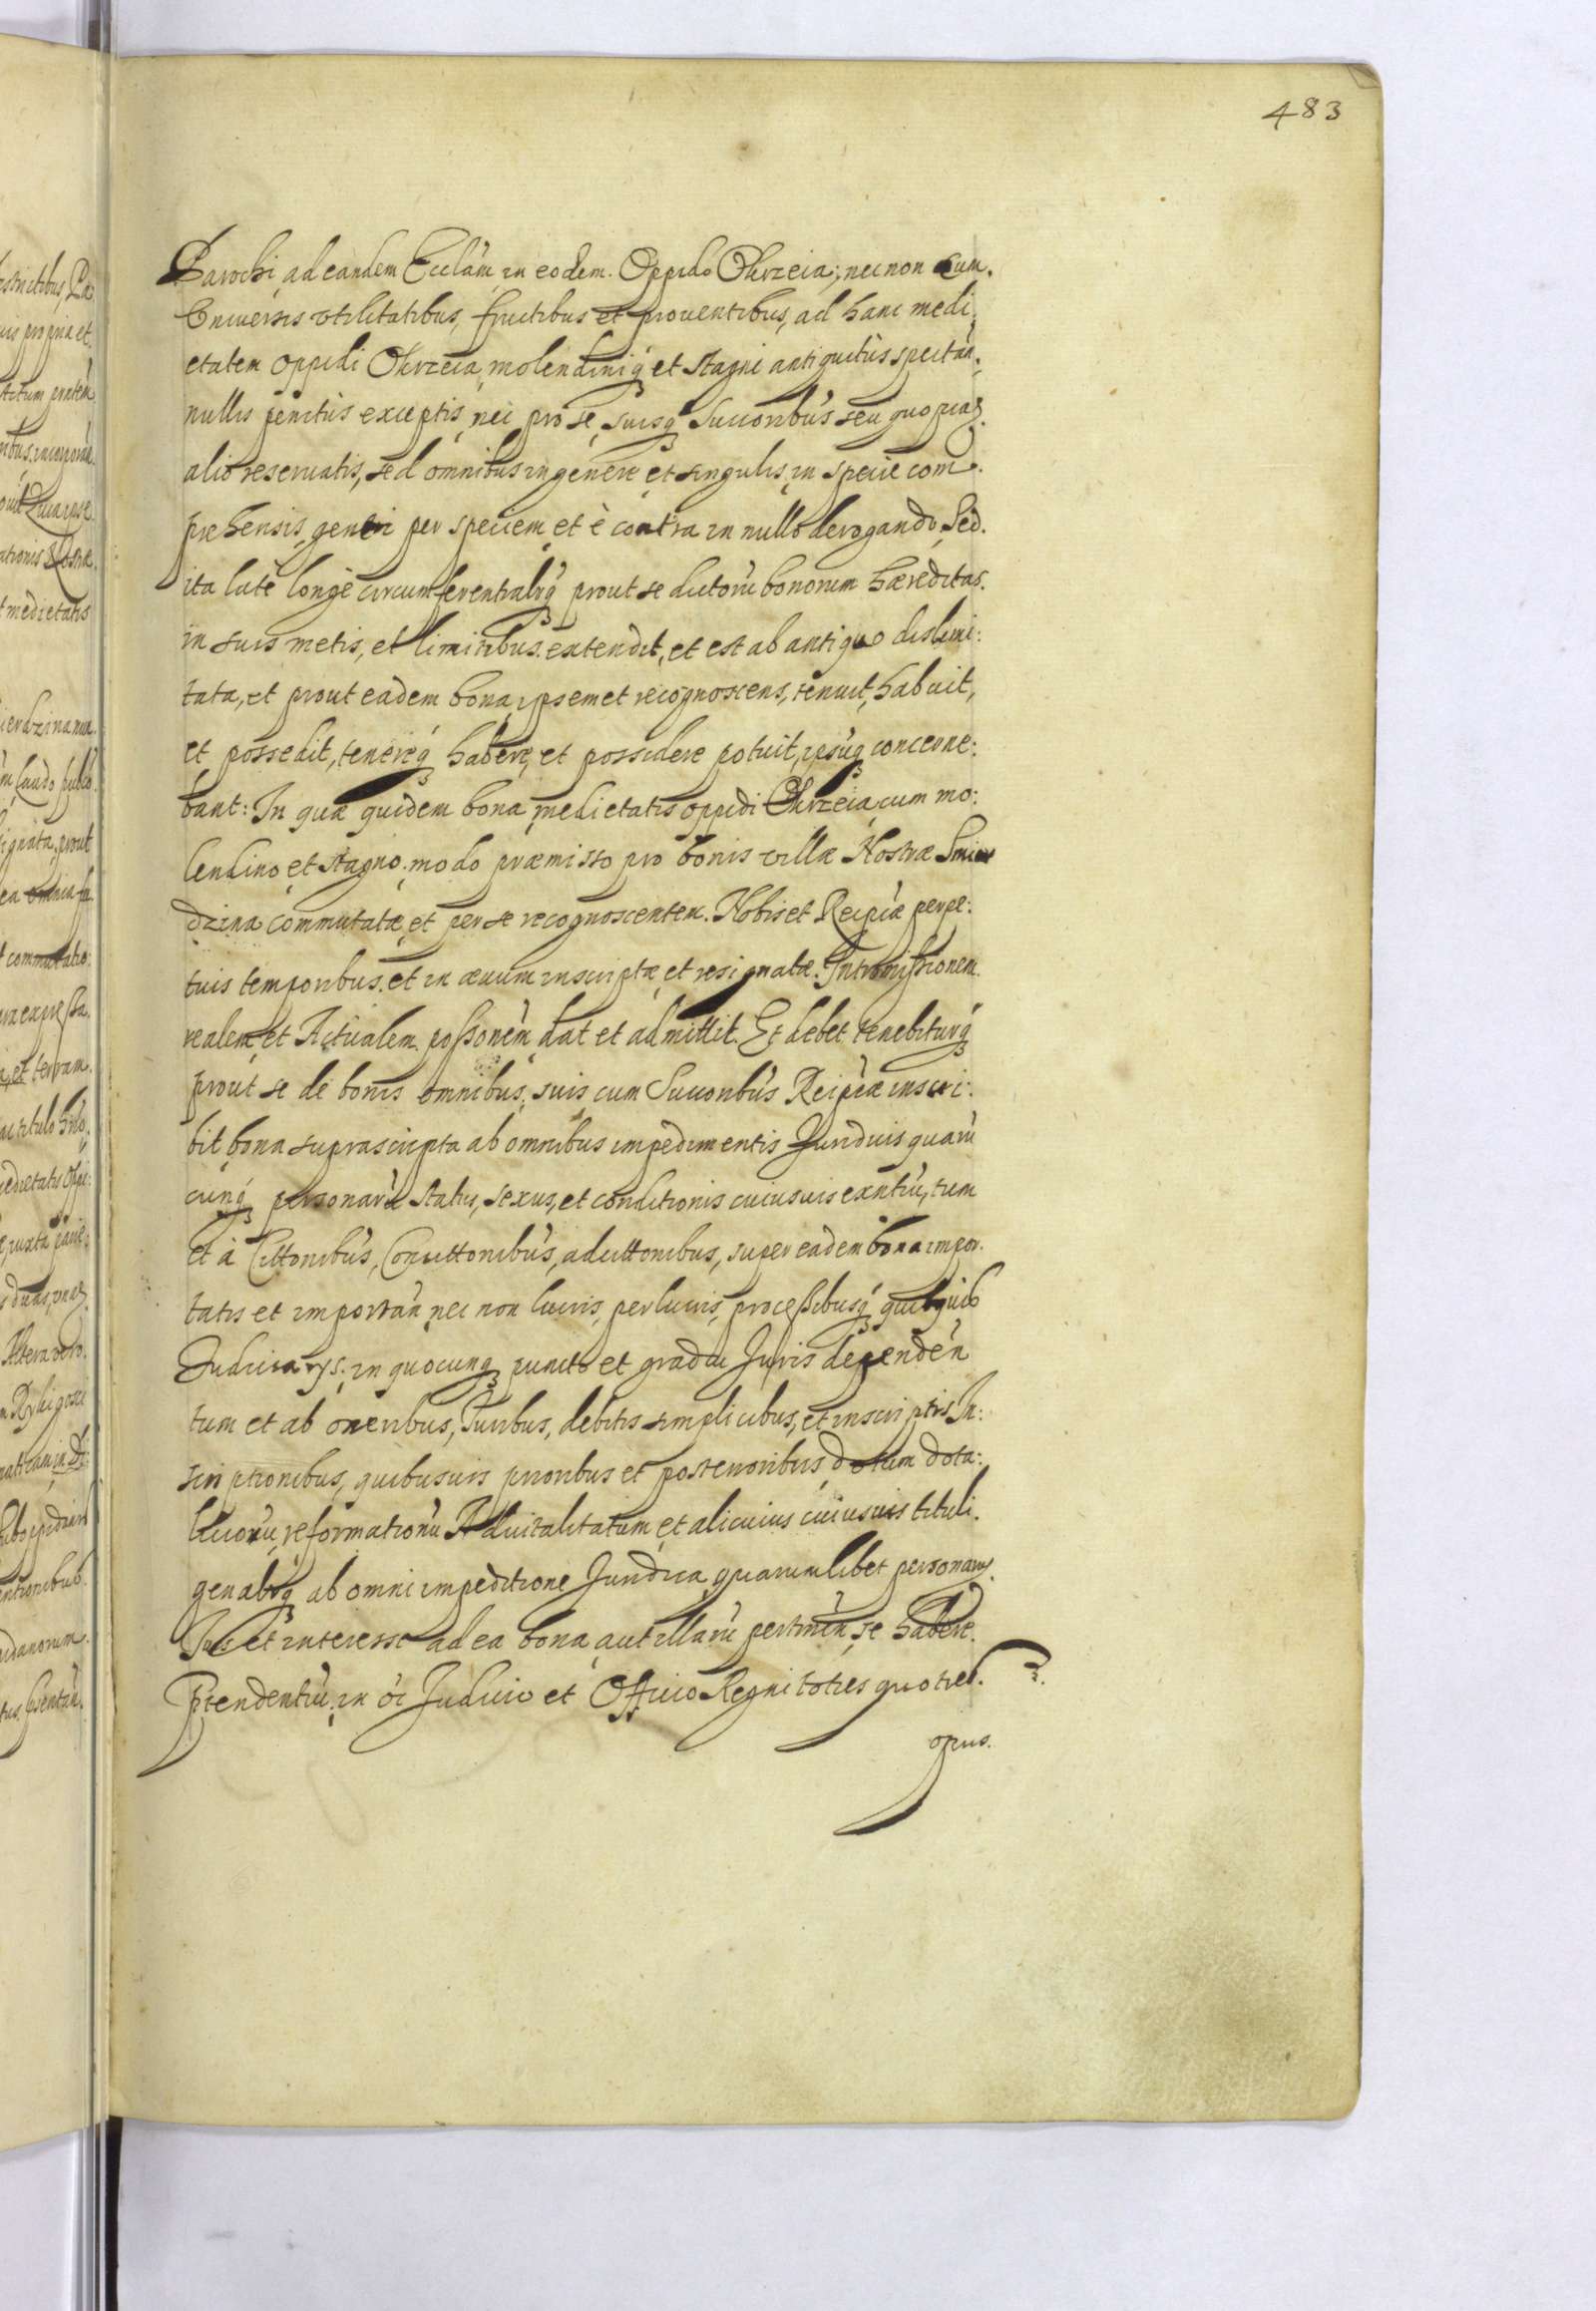 483
Parochi, ad eandem Ecclãm in eodem. Oppido Okrzeia; nec non cum.
Universis utilitatibus, fructibus et proventibus, ad hanc medi:
etatem oppidi Okrzeia molendiniq́ et stagni antiquitùs spectań.
nullis penitùs exceptis, nec pro se, suisq́ Succoribús seu quopiaʒ
alio reservatis, sed omnibus in genere et singulis in specie com
prehensis, generi per speciem et è contra in nullo derogando. Sed.
ita latè longè circumferentialr̀q́ prout se dictorù bonorum hæreditas.
in suis metis, et limitibus. extendit, et est ab antiquo dislimi:
tata, et prout eadem bona ipsemet recognoscens, tenuit, habuit,
et possedit, tenereq́ habere, et possidere potuit, ipsúq concerne:
bant: In quæ quidem bona medietatis oppidi Okrzeia, cum mo:
lendino et stagno. modo præmisso pro bonis villæ Nostræ Smier
dzina commutatæ et per se recognoscentem. Nobis et Reipcæ perpe:
tuis temporibus. et in ævum inscriptæ et resignatæ. Intromissionem
realem et Actualem possonem̀ dat et admittit. Et debet tenebiturq́
prout se de bonis omnibus suis cum Succoribús Reipcæ inscri:
bit bona suprascripta ab omnibus impedimentis Juridicis quarù
cunq́ personarù status, sexus, et conditionis cuiusuis exntiù, tum
et à Cittonibús, Conuittonibús, adcittonibus, super eadem bona impor.
tatis et importań nec non lucris, perlucris, processibusq́ quibusuis
Judiciarys. in quocunq puncto et gradu Juris dependeń
tum et ab oneribus, Juribus, debitis simplicibus, et inscriptis In:
scriptionibus, quibusuis prioribus et posterioribus, dotum dota:
liciorù, reformationù Aduitalitatum et alicuius cuiusuis tituli.
genalr̀q́ ab omni impeditione Juridica quarumlibet personarù.
Jus et interesse ad ea bona, aut illarù pertineń, se habere.
Ptendentiù. in oì Judicio et Officio Regni toties quoties.
opus.